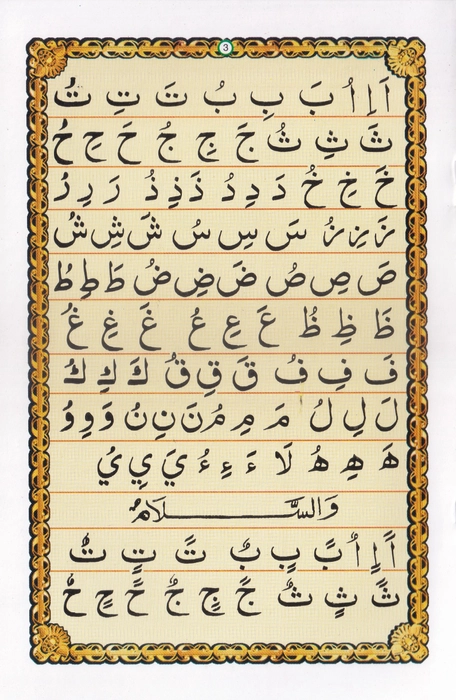 3
اَ اِ اُ بَ بِ بُ تَ تِ تُ
ثَ ثِ ثُ جَ جِ جُ حَ حِ حُ
خَ خِ خُ دَ دِ دُ ذَ ذِ ذُ رَ رِ رُ
زَ زِ زُ سَ سِ سُ شَ شِ شُ
صَ صِ صُ ضَ ضِ ضُ طَ طِ طُ
ظَ ظِ ظُ عَ عِ عُ غَ غِ غُ
فَ فِ فُ قَ قِ قُ كَ كِ كُ
لَ لِ لُ مَ مِ مُ نَ نِ نُ وَ وِ وُ
هَ هِ هُ لَا ءَ ءِ ءُ يَ يِ يُ
وَالسَّلَامُ
اً اٍ اٌ بً بٍ بٌ تً تٍ تٌ
ثً ثٍ ثٌ جً جٍ جٌ حً حٍ حٌ